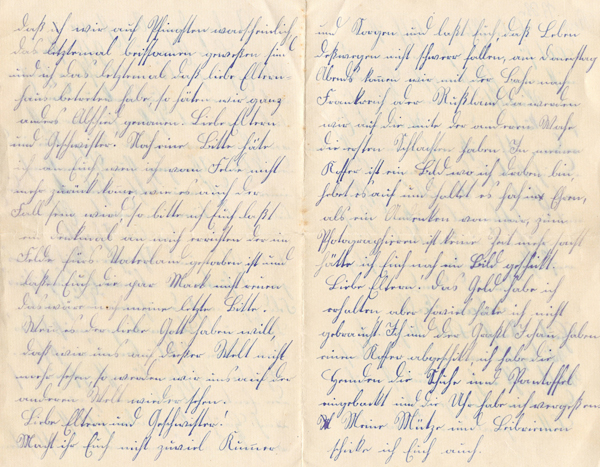 daß wir auf Pfingsten warscheinlich
das letztemal beisammen gewesen sind
und ich das letztemal daß liebe Eltern
haus betreten habe, so häten wir ganz
anders Abschied genomen. Liebe Eltern
und Geschwister. Noch eine Bitte häte
ich an Euch, wen ich vom Felde nicht
mehr zurück kome, wie es auch der
Fall sein wird, so bitte ich Euch laßt
ein denkmal an mich errichten der im
Felde fürs Vaterland gestorben ist und
laßet Euch die par Mark nicht reuen
das wäre meine letzte Bitte.
Wen es der liebe Gott haben will,
daß wir uns auf dieser Welt nicht
mehr sehen, so werden wir uns auf der
anderen Welt wieder sehen.
Liebe Eltern und Geschwister!
Macht ihr Euch nicht zuviel Kummer
und Sorgen und laßt Euch, daß Leben
deßwegen nicht schwer fallen, am Dienstag
Abends komen wir mit der Bahn nach
Frankreich oder Rußland da werden
wir auf die mite der anderen Woche
die ersten Schlagen haben. In meinen
Koffer ist ein Bild wo ich droben bin,
hebet es auf und haltet es fest in Ehren,
als ein Andenken von mir, zum
Photographieren ist keine Zeit mehr sonst
hätte ich Euch noch ein Bild geschickt.
Liebe Eltern. Das Geld habe ich
erhalten aber soviel häte ich nicht
gebraucht. Ich und der haben
einen Koffer abgeschickt, ich habe die
Hemden die Schuhe und Pantoffel
eingepackt und die Uhr habe ich vergeßen
Meine Mütze und Leibriemen
schicke ich Euch auch.